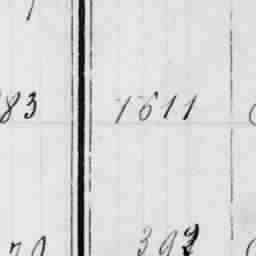 83 1611
70 392